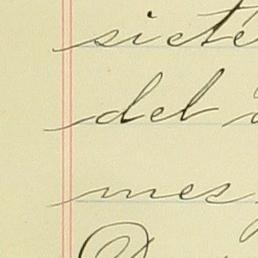 siete
del
mes